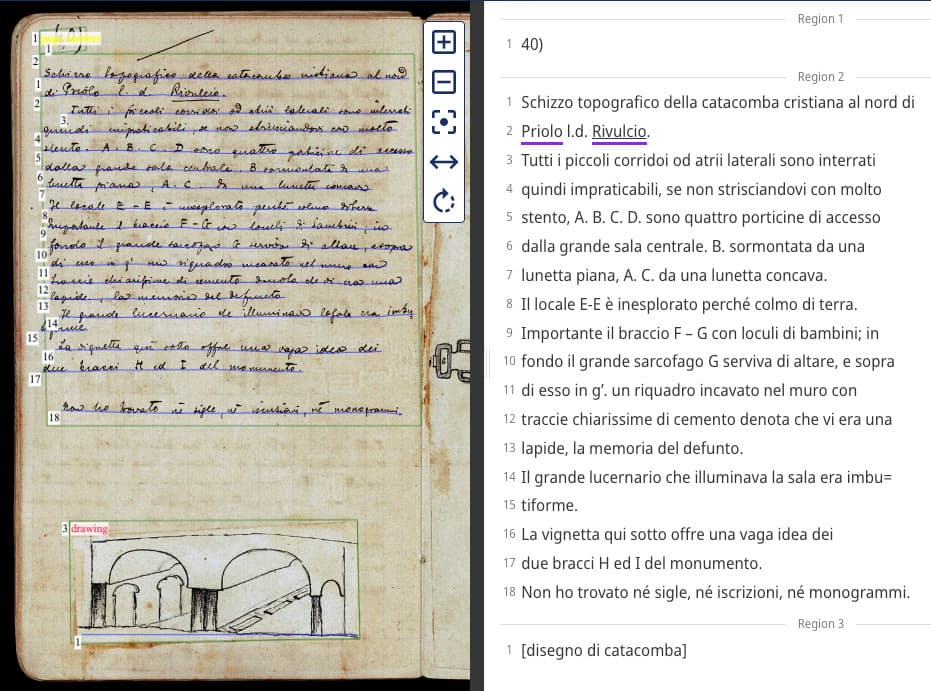 40)
Schizzo topografico della catacomba cristiana al nord
di Priolo l. d. Rivulcio.
Tutti i piccoli corridoi od atrii laterali sono interrati
quindi impraticabili, se non strisciandovi con molto
stento. A. B. C. D sono quattro porticine di accesso
dalla grande sala centrale. B sormontata da una
lunetta piana, A. C. da una lunetta concava
Il locale E – E è inesplorato perché colmo di terra
Importante il braccio F – G con loculi di bambini; in
fondo il grande sarcofago G serviva di altare, e sopra
di esso in g' un riquadro incavato nel muro con
traccie chiarissime di cemento denota che vi era una
lapide, la memoria del defunto
Il grande lucernario che illuminava la sala era imbu=
tiforme
La vignetta qui sotto offre una vaga idea dei
due bracci H ed I del monumento.
Non ho trovato né sigle, né iscrizioni, né monogrammi.
3 drawing
1
Region 1
1 40)
Region 2
1 Schizzo topografico della catacomba cristiana al nord di
2 Priolo l.d. Rivulcio.
3 Tutti i piccoli corridoi od atrii laterali sono interrati
4 quindi impraticabili, se non strisciandovi con molto
5 stento, A. B. C. D. sono quattro porticine di accesso
6 dalla grande sala centrale. B. sormontata da una
7 lunetta piana, A. C. da una lunetta concava.
8 Il locale E-E è inesplorato perché colmo di terra.
9 Importante il braccio F – G con loculi di bambini; in
10 fondo il grande sarcofago G serviva di altare, e sopra
11 di esso in g’. un riquadro incavato nel muro con
12 traccie chiarissime di cemento denota che vi era una
13 lapide, la memoria del defunto.
14 Il grande lucernario che illuminava la sala era imbu=
15 tiforme.
16 La vignetta qui sotto offre una vaga idea dei
17 due bracci H ed I del monumento.
18 Non ho trovato né sigle, né iscrizioni, né monogrammi.
Region 3
1 [disegno di catacomba]